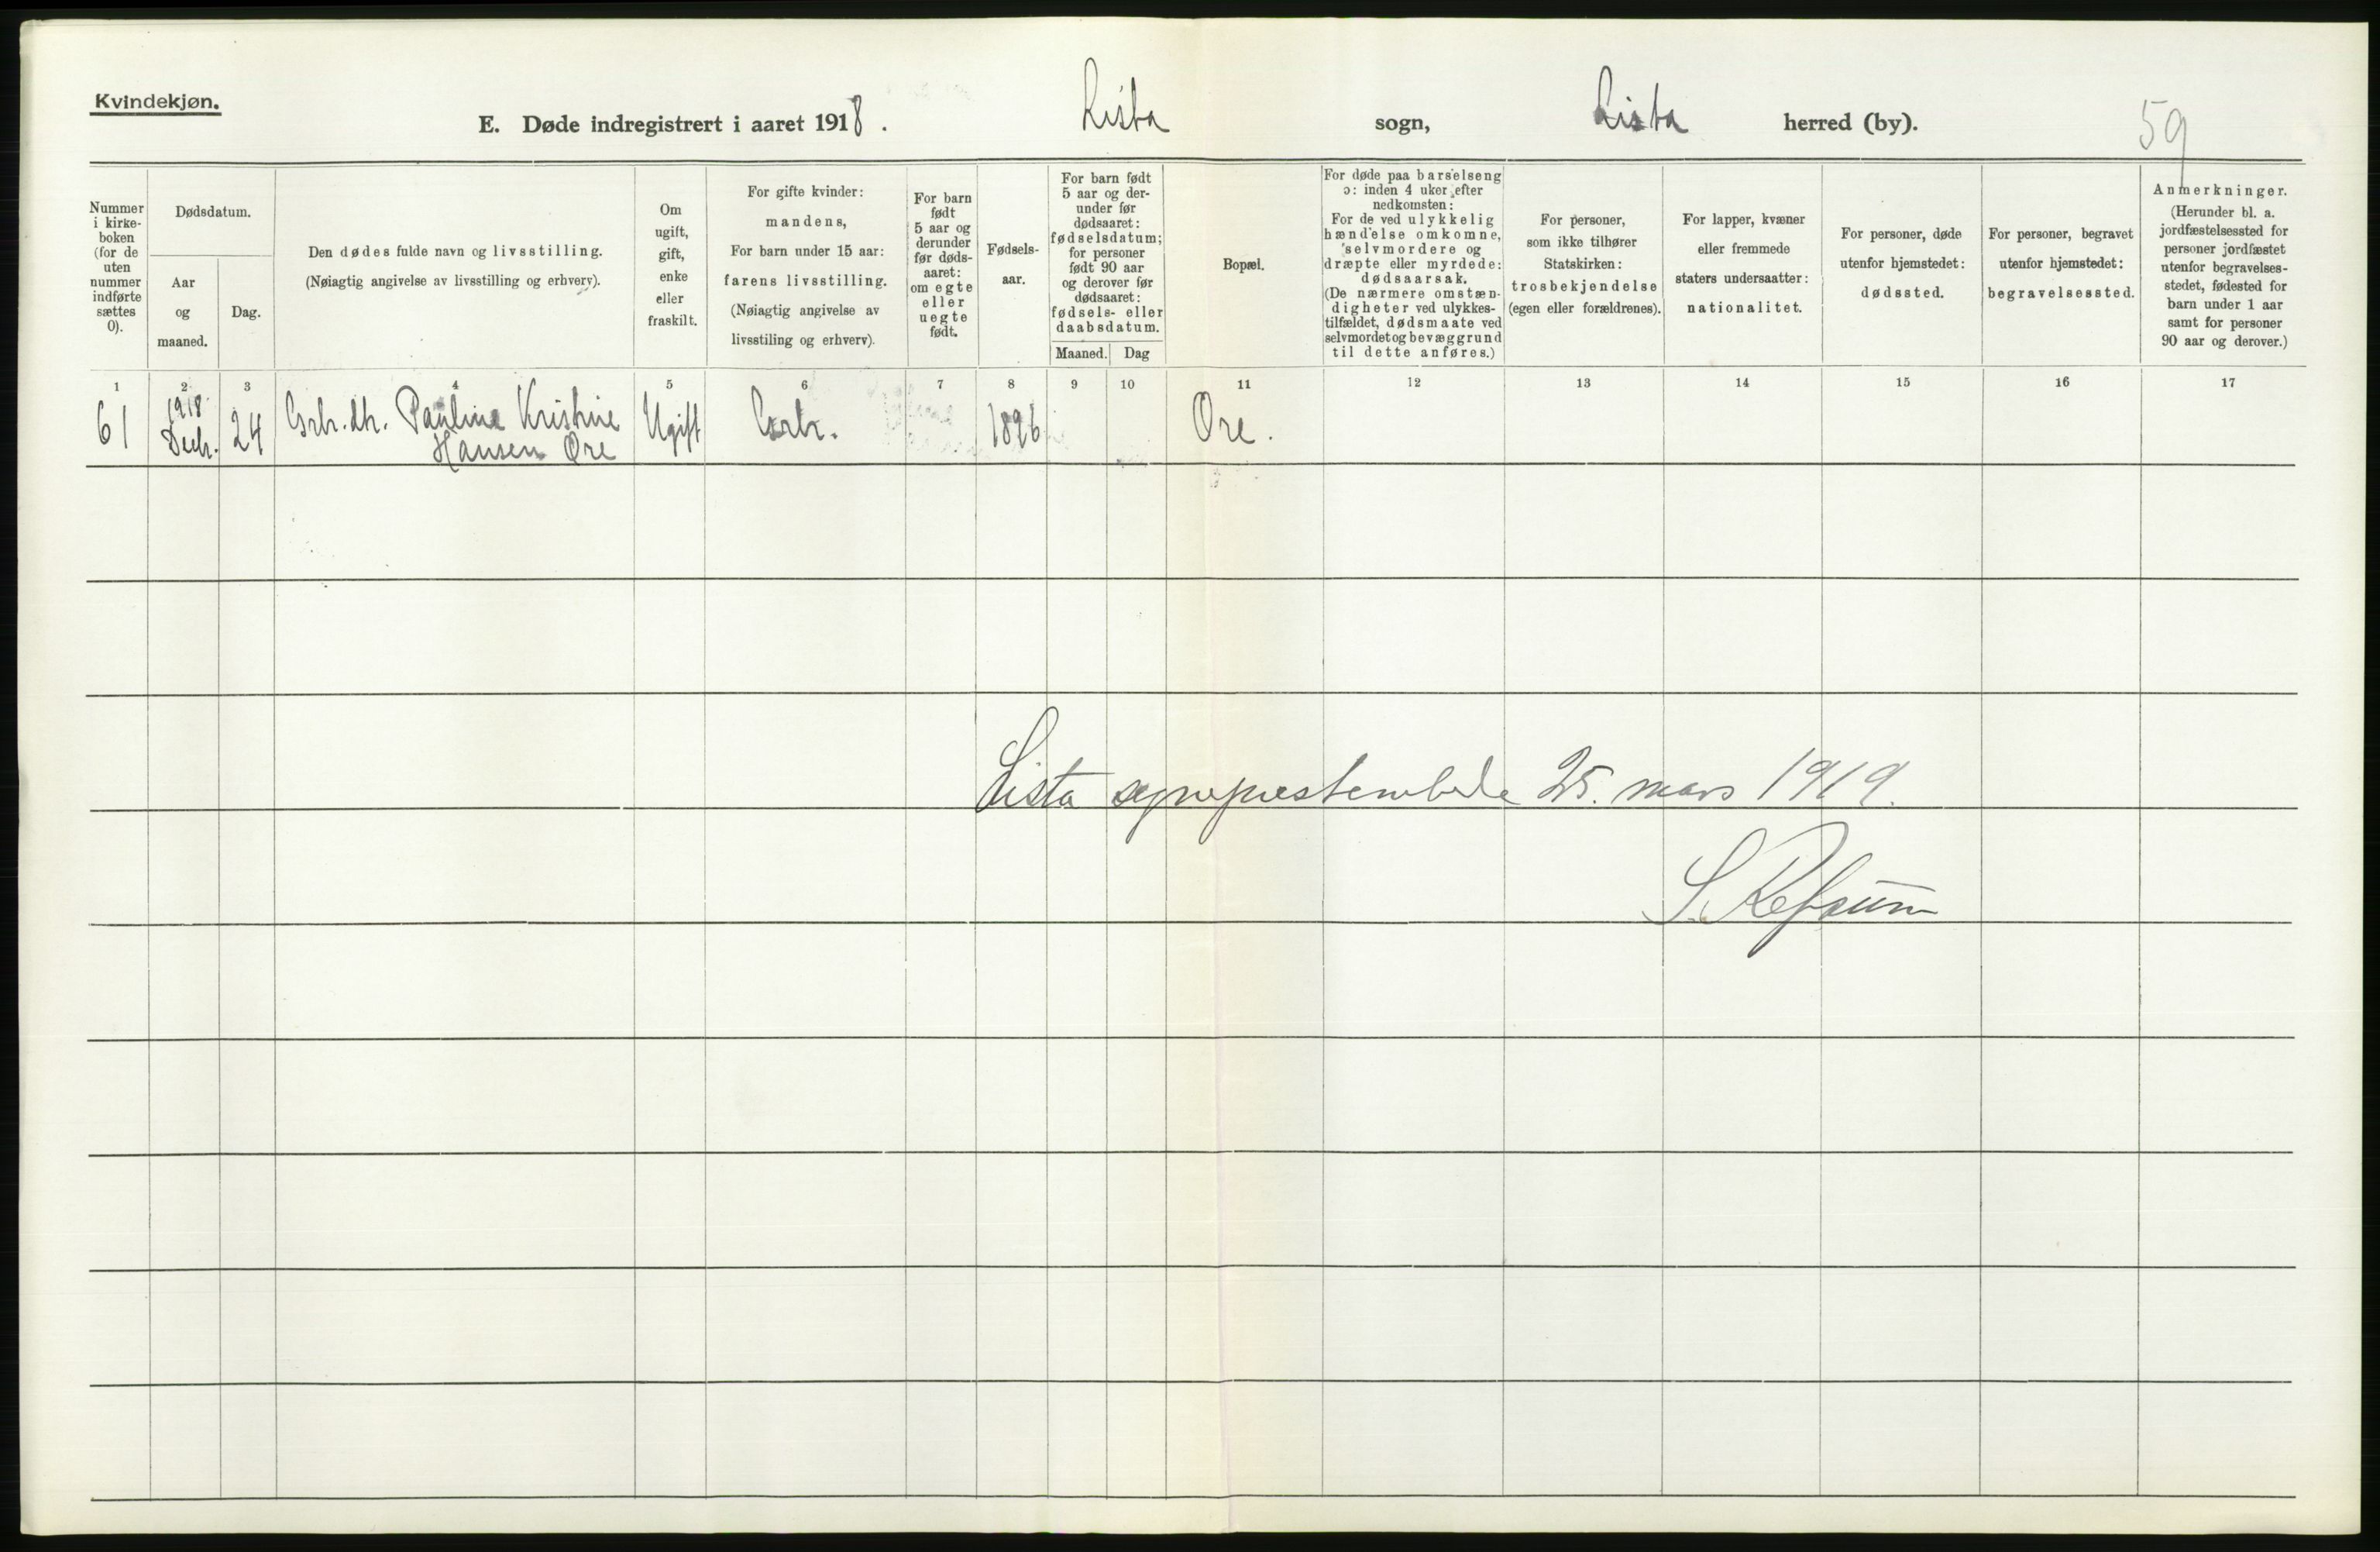 Kvindekjøn.
E. Døde indregistrert i aaret 1918. Lista sogn, Lista herred (by).
59
Nummer
i kirke-
boken
(for de
uten
nummer
indførte
sættes
0).
Dødsdatum.
Aar
og
maaned.
Dag.
Den dødes fulde navn og livsstilling.
(Nøiagtig angivelse av livsstilling og erhverv).
Om
ugift,
gift,
enke
eller
fraskilt.
For gifte kvinder:
mandens,
For barn under 15 aar:
farens livsstilling.
(Nøiagtig angivelse av
livsstiling og erhverv).
For barn
født
5 aar og
derunder
før døds-
aaret:
om egte
eller
uegte
født.
Fødsels-
aar.
For barn født
5 aar og der-
under før
dødsaaret:
fødselsdatum;
for personer
født 90 aar
og derover før
dødsaaret:
fødsels- eller
daabsdatum.
Maaned. Dag
Bopæl.
For døde paa barselseng
ɔ: inden 4 uker efter
nedkomsten:
For de ved ulykkelig
hændelse omkomne,
selvmordere og
dræpte eller myrdede:
dødsaarsak.
(De nærmere omstæn-
digheter ved ulykkes-
tilfældet, dødsmaate ved
selvmordet og bevæggrund
til dette anføres.)
For personer,
som ikke tilhører
Statskirken:
trosbekjendelse
(egen eller forældrenes).
For lapper, kvæner
eller fremmede
staters undersaatter:
nationalitet.
For personer, døde
utenfor hjemstedet:
dødssted.
For personer, begravet
utenfor hjemstedet:
begravelsessted.
Anmerkninger.
(Herunder bl. a.
jordfæstelsessted for
personer jordfæstet
utenfor begravelses-
stedet, fødested for
barn under 1 aar
samt for personer
90 aar og derover.)
1 2 3 4 5 6 7 8 9 10 11 12 13 14 15 16 17
61 1918 Decbr. 24 Grbr. dtr. Pauline Kristine Ugift Grbr. 1896 Ore.
Hansen Ore
Lista sogneprestembede 25. mars 1919.
S. Refsum